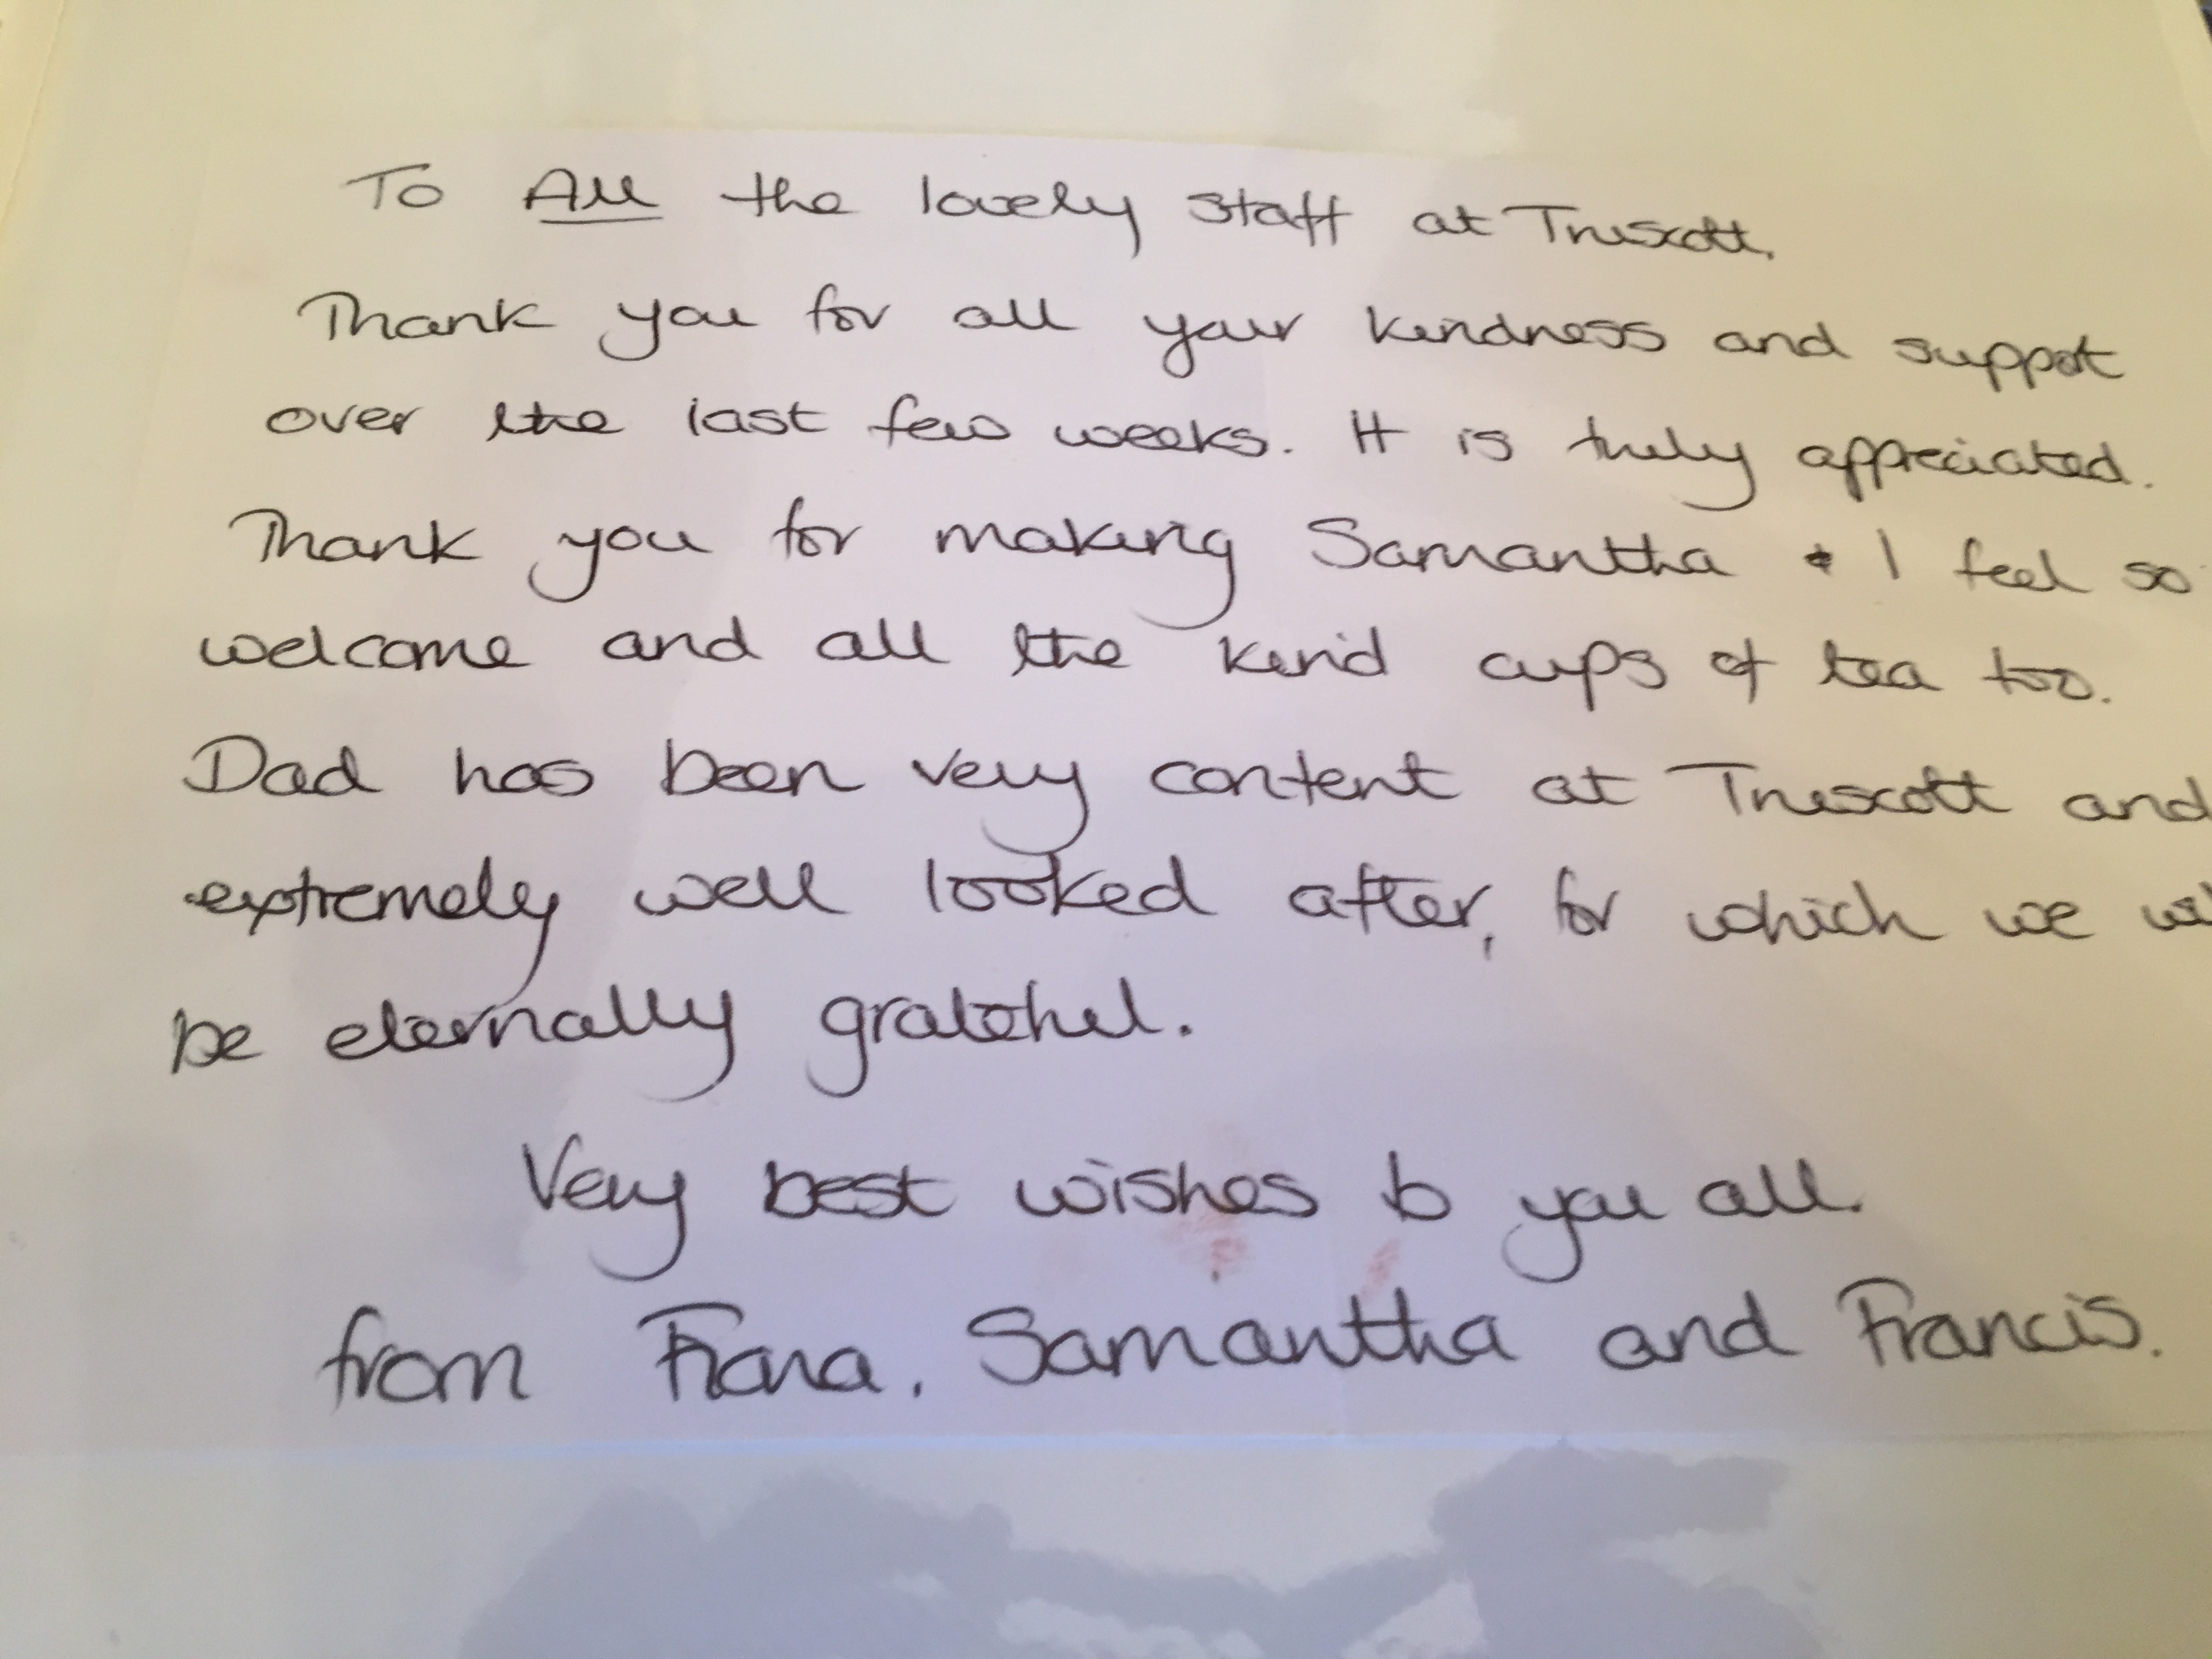 To All the lovely staff at Truscott.
Thank you for all your kindness and support
over the last few weeks. It is truly appreciated.
Thank you for making Samantha & I feel so
welcome and all the kind cups of tea too.
Dad has been very content at Truscott and
extremely well looked after, for which we wi
be eternally grateful.
Very best wishes to you all.
from Fiona, Samantha and Francis.